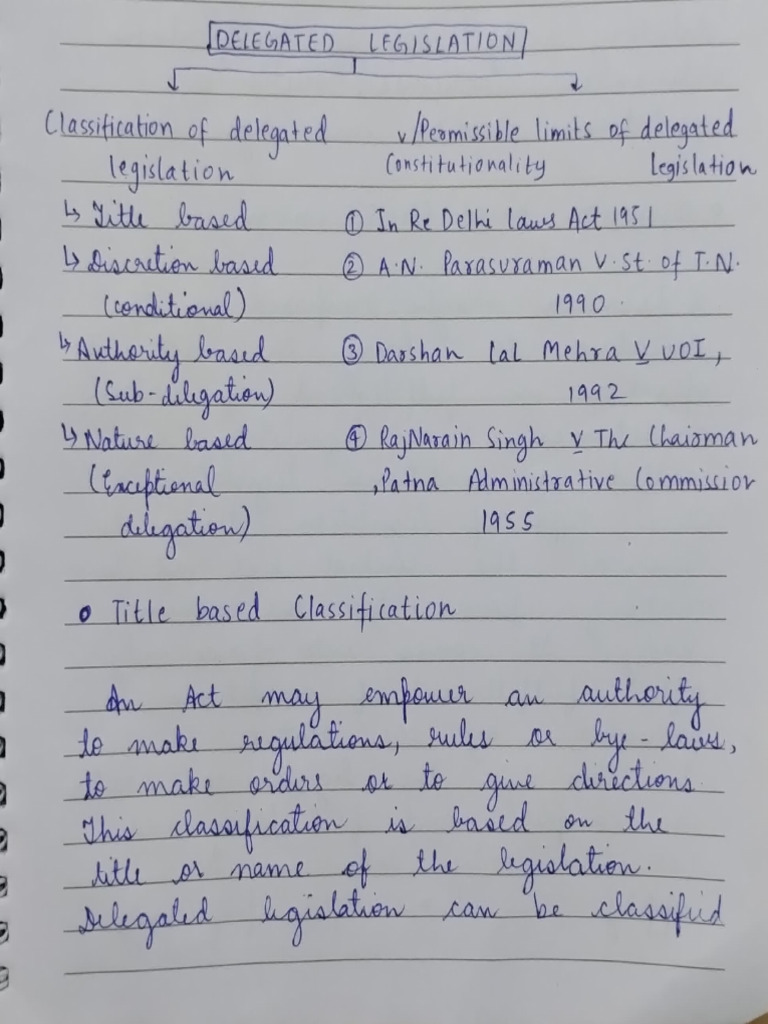 DELEGATED LEGISLATION
Classification of delegated legislation
↳ Title based
↳ Discretion based
(conditional)
↳ Authority based
(Sub-delegation)
↳ Nature based
(Exceptional
delegation)
√/Permissible limits of delegated
Constitutionality legislation
① In Re Delhi laws Act 1951
② A.N. Parasuraman V. St. of T.N.
1990.
③ Darshan Lal Mehra V UOI,
1992
④ RajNarain Singh V The Chairman
,Patna Administrative Commission
1955
• Title based Classification
An Act may empower an authority
to make regulations, rules or bye-laws,
to make orders or to give directions.
This classification is based on the
title or name of the legislation.
Delegated legislation can be classified